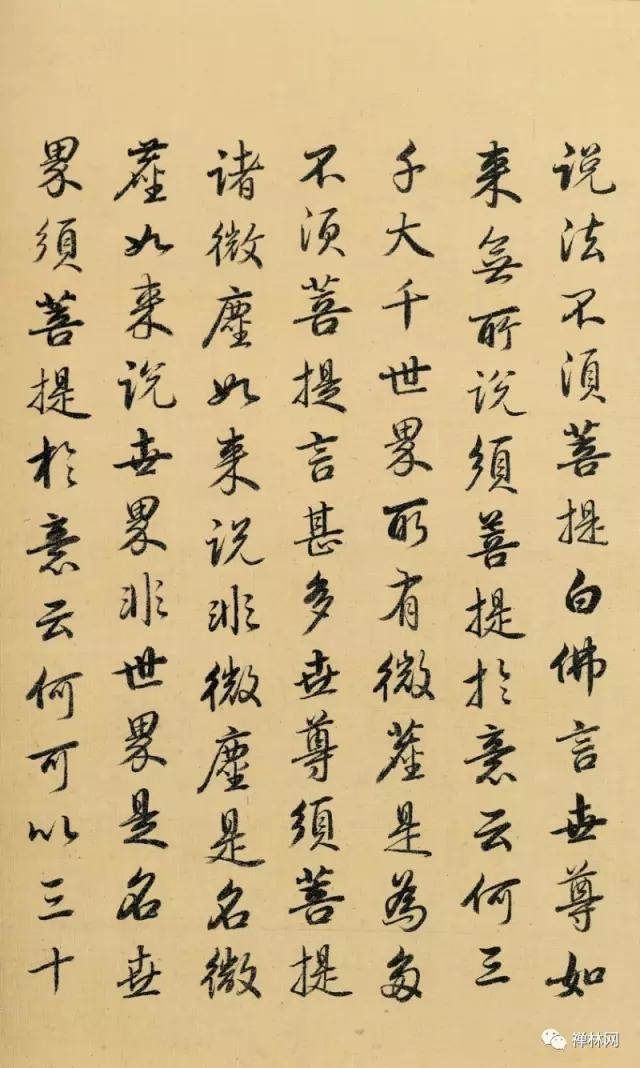 说法不须菩提白佛言世尊如
来无所说须菩提於意云何三
千大千世界所有微尘是为多
不须菩提言甚多世尊须菩提
诸微尘如来说非微尘是名微
尘如来说世界非世界是名世
界须菩提於意云何可以三十
禅林网